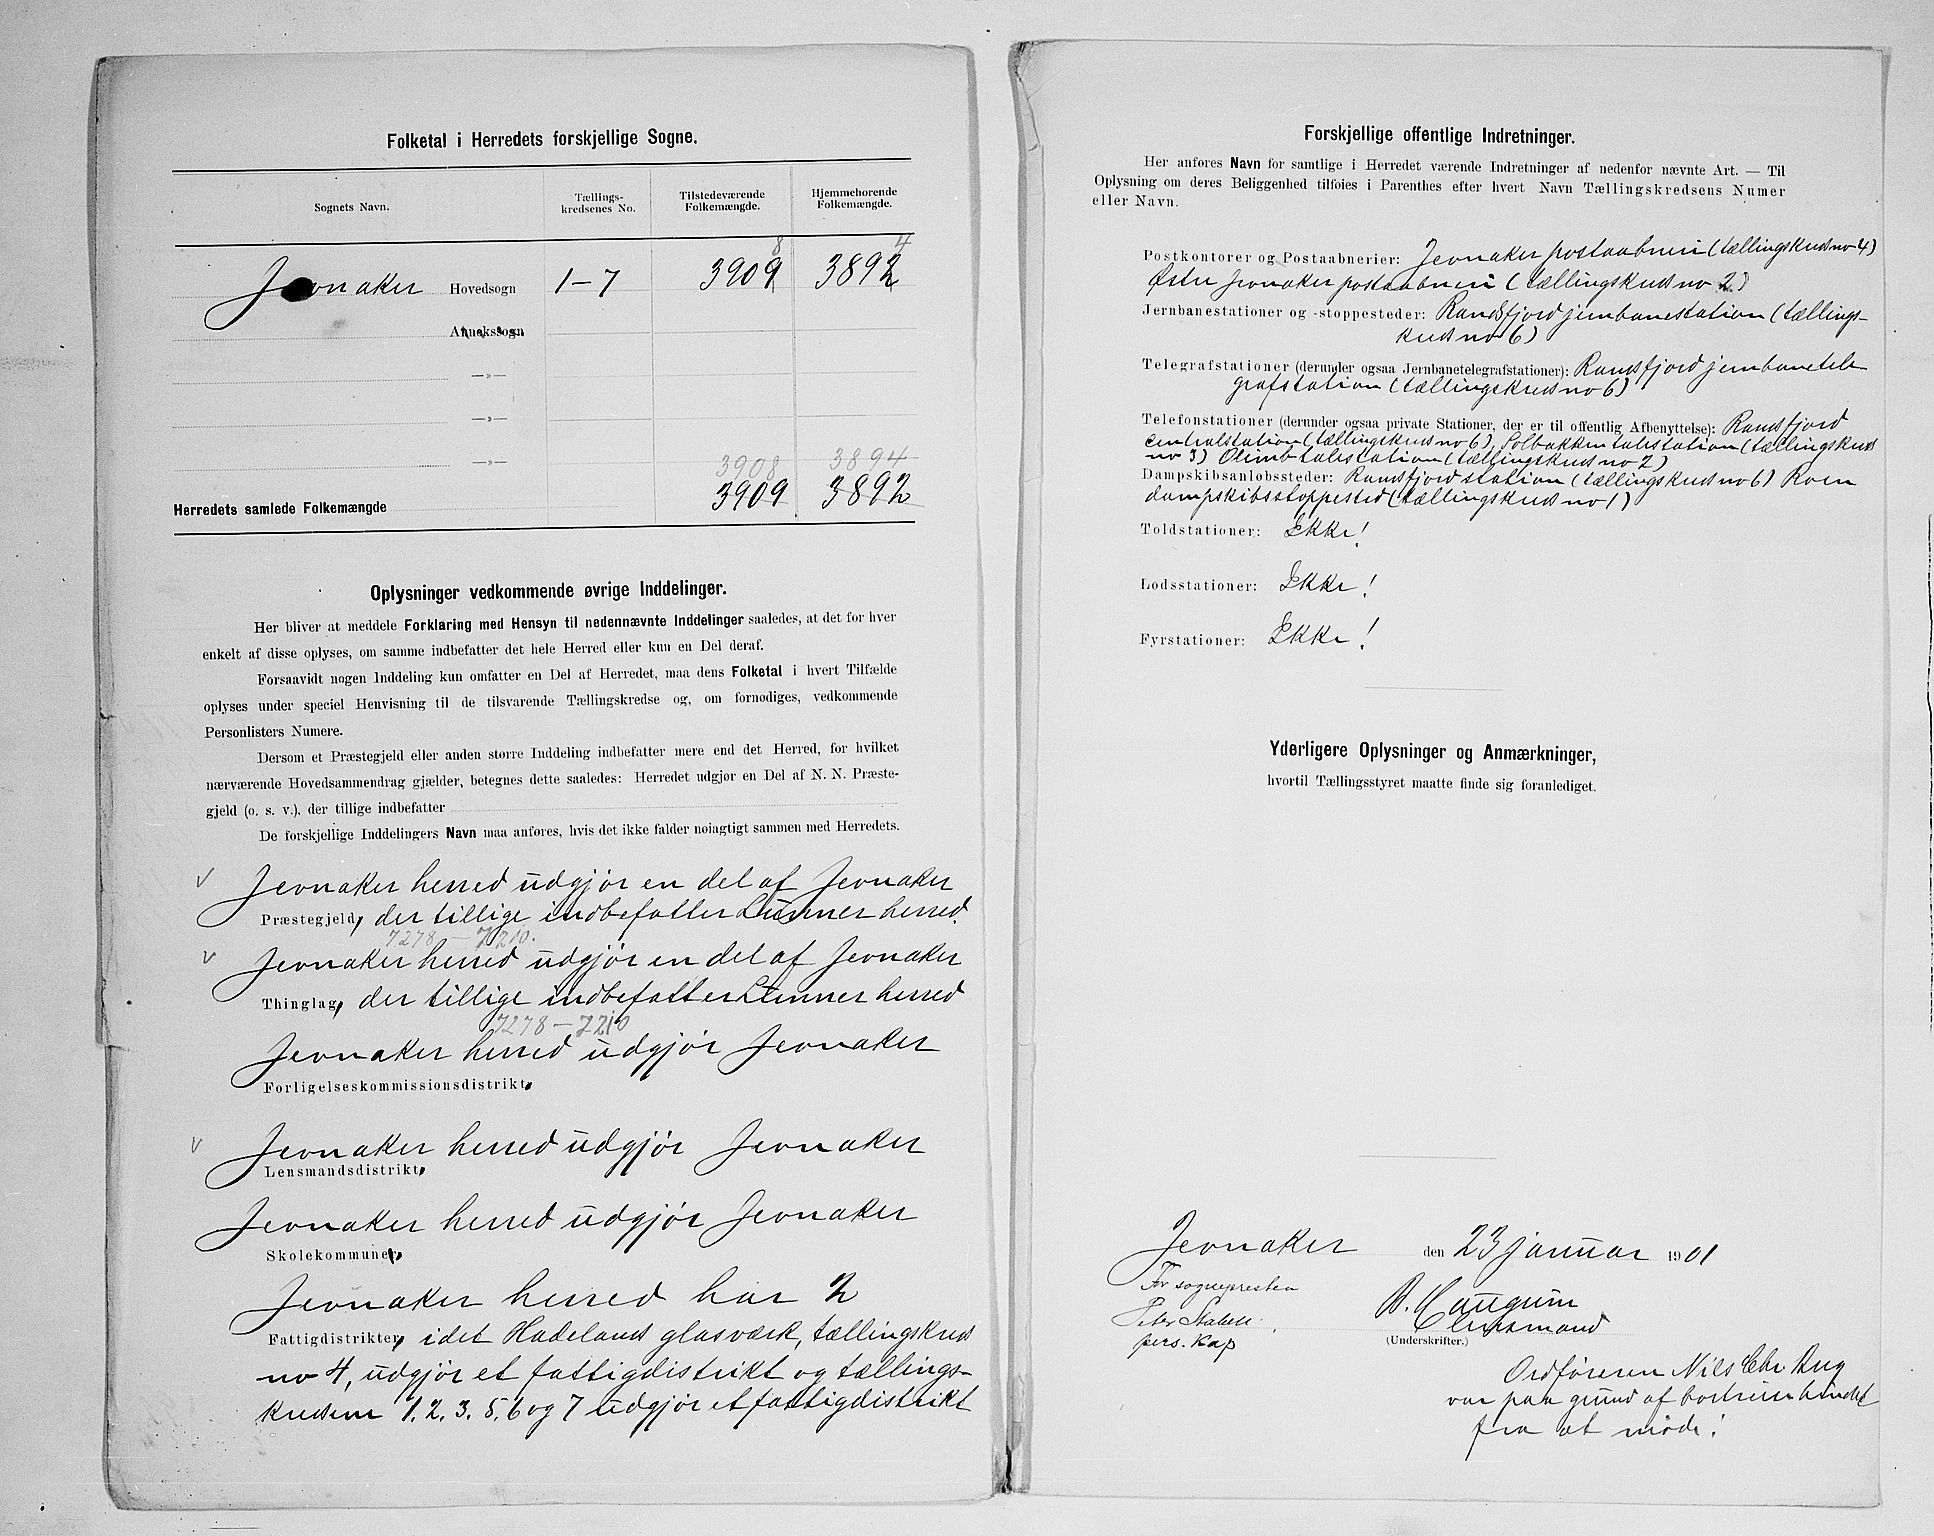 Folketal i Herredets forskjellige Sogne.
Sognets Navn.
Tællings-
kredsenes No.
Tilstedeværende
Folkemængde.
Hjemmehørende
Folkemængde.
8 4
Jevnaker Hovedsogn 1-7 3909 3892
Annekssogn
—»—
—»—
—»— 3908 3894
Herredets samlede Folkemængde 3909 3892
Oplysninger vedkommende øvrige Inddelinger.
Her bliver at meddele Forklaring med Hensyn til nedennævnte Inddelinger saaledes, at det for hver
enkelt af disse oplyses, om samme indbefatter det hele Herred eller kun en Del deraf.
Forsaavidt nogen Inddeling kun omfatter en Del af Herredet, maa dens Folketal i hvert Tilfælde
oplyses under speciel Henvisning til de tilsvarende Tællingskredse og, om fornødiges, vedkommende
Personlisters Numere.
Dersom et Præstegjeld eller anden større Inddeling indbefatter mere end det Herred, for hvilket
nærværende Hovedsammendrag gjælder, betegnes dette saaledes: Herredet udgjør en Del af N. N. Præste-
gjeld (o. s. v.), der tillige indbefatter
De forskjellige Inddelingers Navn maa anføres, hvis det ikke falder nøiagtigt sammen med Herredets.
Jevnaker herred udgjør en del af Jevnaker
Præstegjeld, der tillige indbefatter Lunner herred.
7278 — 7210.
Jevnaker herred udgjør en del af Jevnaker
Thinglag, der tillige indbefatter Lunner herred
7278 — 7210
Jevnaker herred udgjør Jevnaker
Forligelseskommissionsdistrikt,
Jevnaker herred udgjør Jevnaker
Lensmandsdistrikt,
Jevnaker herred udgjør Jevnaker
Skolekommune,
Jevnaker herred har 2
Fattigdistrikter, idet Hadelands glasværk, tællingskreds
no 4, udgjør et fattigdistrikt og tællings-
kredsene 1. 2. 3. 5. 6 og 7 udgjør et fattigdistrikt
Forskjellige offentlige Indretninger.
Her anføres Navn for samtlige i Herredet værende Indretninger af nedenfor nævnte Art. — Til
Oplysning om deres Beliggenhed tilføies i Parenthes efter hvert Navn Tællingskredsens Numer
eller Navn.
Postkontorer og Postaabnerier: Jevnaker postaabneri (tællingskreds no 4)
Østre Jevnaker postaabneri (tællingskreds no 2)
Jernbanestationer og -stoppesteder: Randsfjord jernbanestation (tællings-
kreds no 6)
Telegrafstationer (derunder ogsaa Jernbanetelegrafstationer): Randsfjord jernbanetele
grafstation (tællingskreds no 6)
Telefonstationer (derunder ogsaa private Stationer, der er til offentlig Afbenyttelse): Randsfjord
centralstation (tællingskreds no 6), Solbakken talestation (tællingskreds
no 3) Olimb talestation (tællingskreds no 2)
Dampskibsanløbssteder: Randsfjord station (tællingskreds no 6) Roen
dampskibsstoppested (tællingskreds no 1)
Toldstationer: Ikke!
Lodsstationer: Ikke!
Fyrstationer: Ikke!
Yderligere Oplysninger og Anmærkninger,
hvortil Tællingsstyret maatte finde sig foranlediget.
Jevnaker den 23 januar 1901
For sognepresten
B. Haugum
Peter
Lensmand
pers. Kap
(Underskrifter.)
Ordføreren Nils Chr
var paa grund af bortreise hindret
fra at møde!